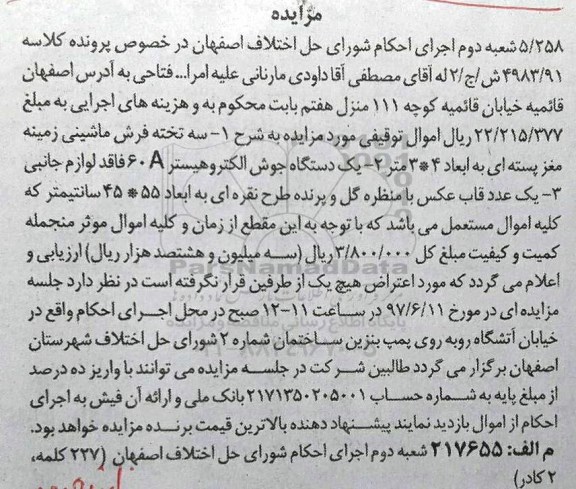 مزایده
۵/۲۵۸ شعبه دوم اجرای احکام شورای حل اختلاف اصفهان در خصوص پرونده کلاسه
۴۹۸۳/۹۱ ش/ج/۲ له آقای مصطفی آقا داودی مارنانی علیه امرا... فتاحی به آدرس اصفهان
قائمیه خیابان قائمیه کوچه ۱۱۱ منزل هفتم بابت محکوم به و هزینه های اجرایی به مبلغ
۲۲/۲۱۵/۳۷۷ ریال اموال توقیفی مورد مزایده به شرح ۱- سه تخته فرش ماشینی زمینه
مغز پسته ای به ابعاد ۴*۳ متر ۲- یک دستگاه جوش الکتروهیستر ۶۰A فاقد لوازم جانبی
۳- یک عدد قاب عکس با منظره گل و پرنده طرح نقره ای به ابعاد ۵۵ * ۴۵ سانتیمتر که
کلیه اموال مستعمل می باشد که با توجه به این مقطع از زمان و کلیه اموال موثر منجمله
کمیت و کیفیت مبلغ کل ۳/۸۰۰/۰۰۰ ریال (سه میلیون و هشتصد هزار ریال) ارزیابی و
اعلام می گردد که مورد اعتراض هیچ یک از طرفین قرار نگرفته است در نظر دارد جلسه
مزایده ای در مورخ ۹۷/۶/۱۱ در ساعت ۱۱-۱۲ صبح در محل اجرای احکام واقع در
خیابان آتشگاه روبه روی پمپ بنزین ساختمان شماره ۲ شورای حل اختلاف شهرستان
اصفهان برگزار می گردد طالبین شرکت در جلسه مزایده می توانند با واریز ده درصد
از مبلغ پایه به شماره حساب ۲۱۷۱۳۵۰۲۰۵۰۰۱ بانک ملی و ارائه آن فیش به اجرای
احکام از اموال بازدید نمایند پیشنهاد دهنده بالاترین قیمت برنده مزایده خواهد بود.
م الف: ۲۱۷۶۵۵ شعبه دوم اجرای احکام شورای حل اختلاف اصفهان (۲۲۷ کلمه،
۲ کادر)
ParsNamadData